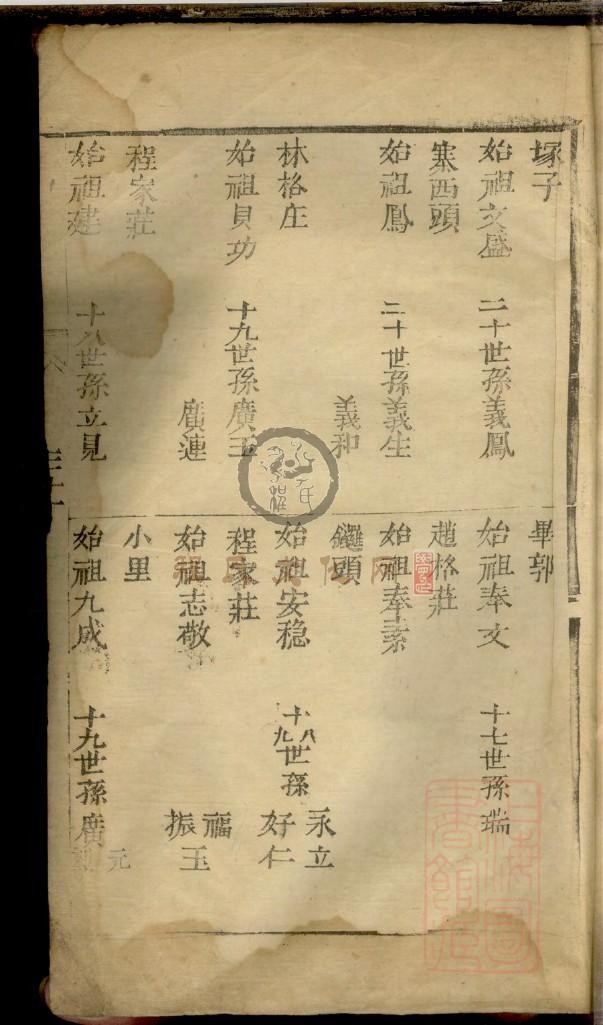 塚子
始祖文盛 二十世孫義鳳
寨西頭
始祖鳳 二十世孫義生
義和
林格庄
始祖貝功 十九世孫廣玉
廣連
程家莊
始祖建 十八世孫立見
畢郭
始祖奉文 十七世孫瑞
趙格莊
始祖奉素
頭
始祖安稳 十八九世孫 永立 好仁
程家莊
始祖志敬 福 振玉
小里
始祖九成 十九世孫廣 元